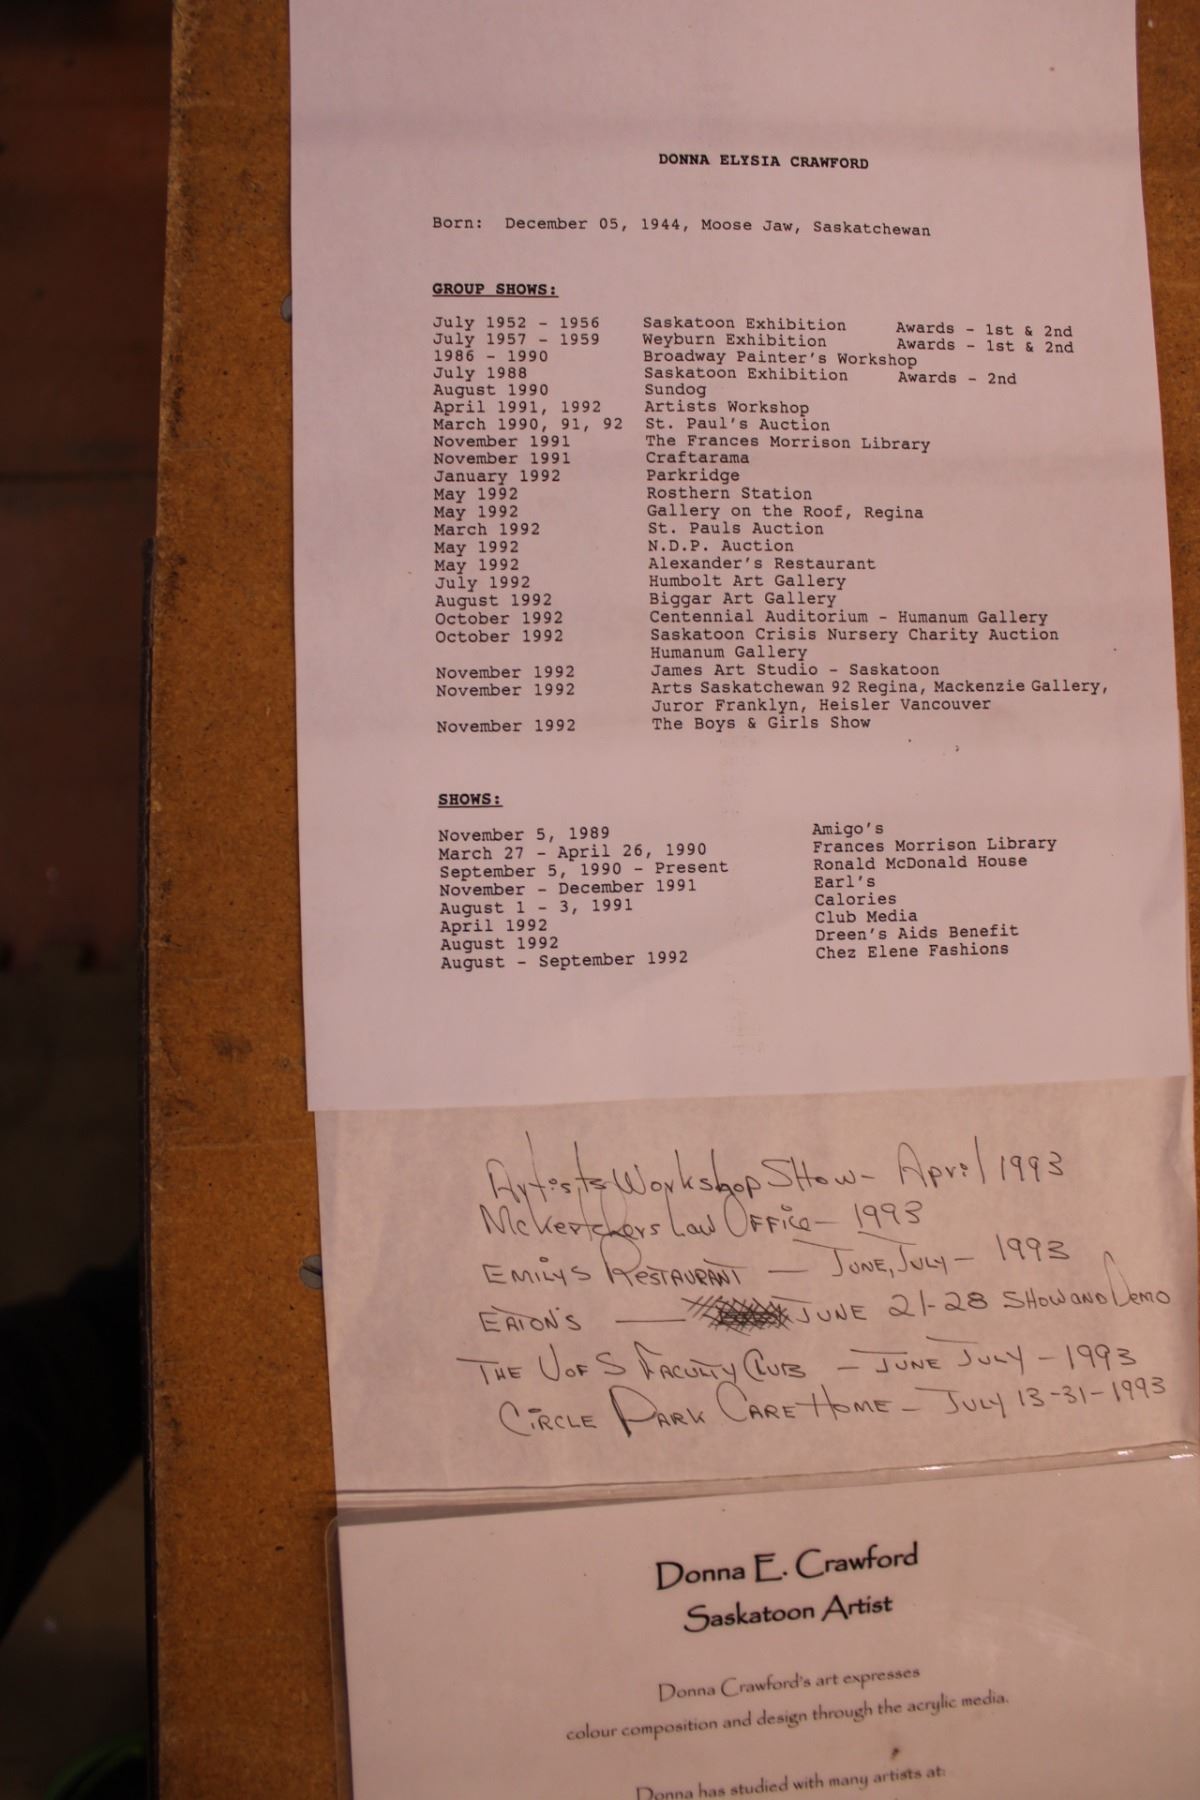 DONNA ELYSIA CRAWFORD
Born: December 05, 1944, Moose Jaw, Saskatchewan
GROUP SHOWS:
July 1952 - 1956 Saskatoon Exhibition Awards - 1st & 2nd
July 1957 - 1959 Weyburn Exhibition Awards - 1st & 2nd
1986 - 1990 Broadway Painter's Workshop
July 1988 Saskatoon Exhibition Awards - 2nd
August 1990 Sundog
April 1991, 1992 Artists Workshop
March 1990, 91, 92 St. Paul's Auction
November 1991 The Frances Morrison Library
November 1991 Craftarama
January 1992 Parkridge
May 1992 Rosthern Station
May 1992 Gallery on the Roof, Regina
March 1992 St. Pauls Auction
May 1992 N.D.P. Auction
May 1992 Alexander's Restaurant
July 1992 Humbolt Art Gallery
August 1992 Biggar Art Gallery
October 1992 Centennial Auditorium - Humanum Gallery
October 1992 Saskatoon Crisis Nursery Charity Auction
Humanum Gallery
November 1992 James Art Studio - Saskatoon
November 1992 Arts Saskatchewan 92 Regina, Mackenzie Gallery,
Juror Franklyn, Heisler Vancouver
November 1992 The Boys & Girls Show
SHOWS:
November 5, 1989 Amigo's
March 27 - April 26, 1990 Frances Morrison Library
September 5, 1990 - Present Ronald McDonald House
November - December 1991 Earl's
August 1 - 3, 1991 Calories
April 1992 Club Media
August 1992 Dreen's Aids Benefit
August - September 1992 Chez Elene Fashions
Artists Workshop Show - April 1993
McKertchers Law Office - 1993
EMILYS RESTAURANT — JUNE, JULY - 1993
EATON'S — JUNE 21-28 SHOW AND DEMO
THE U OF S FACULTY CLUB - JUNE JULY - 1993
CIRCLE PARK CARE HOME - JULY 13-31-1993
Donna E. Crawford
Saskatoon Artist
Donna Crawford's art expresses
colour composition and design through the acrylic media.
Donna has studied with many artists at: